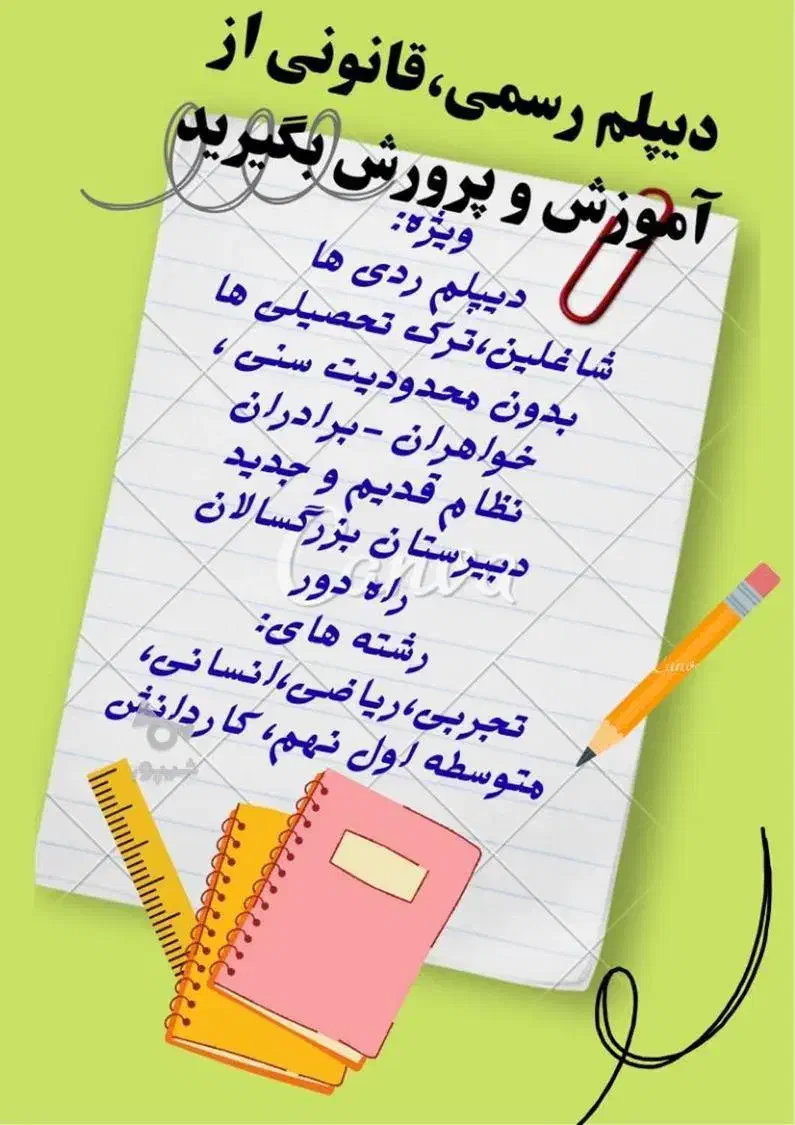 دیپلم رسمی،قانونی از
آموزش و پرورش بگیرید
ویژه:
دیپلم ردی ها
شاغلین،ترک تحصیلی ها
بدون محدودیت سنی ،
خواهران -برادران
نظام قدیم و جدید
دبیرستان بزرگسالان
راه دور
رشته های:
تجربی،ریاضی،انسانی،
متوسطه اول نهم، کاردانش
Canva
Canva
شیپور